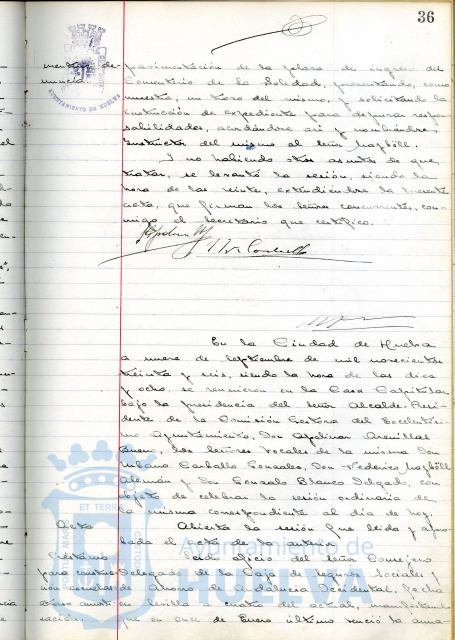 36
AYUNTAMIENTO DE HUELVA
pavimentación de la plaza de ingreso del
Cementerio de la Soledad, presentando, como
muestra, un trozo del mismo, y solicitando la
instrucción de expediente para depurar respon-
sabilidades, acordándose así y nombrándose
Instructor del mismo al señor
Y no habiendo otros asuntos de que
tratar, se levantó la sesión, siendo la
hora de las veinte, extendiéndose la presente
acta, que firman los señores concurrentes, con-
migo el Secretario que certifico.
En la Ciudad de Huelva
a nueve de Septiembre de mil novecientos
treinta y seis, siendo la hora de las diez
y ocho, se reunieron en la Casa Capitular
bajo la presidencia del señor Alcalde-Presi-
dente de la Comisión Gestora del Excelentísi-
mo Ayuntamiento, Don Apolinar Arenillas
Bueno, los señores Vocales de la misma Don
Urbano Carballo González, Don Federico
Alemán y Don Gonzalo Blanco Delgado, con
objeto de celebrar la sesión ordinaria de
la misma correspondiente al día de hoy.
Acta
Abierta la sesión fue leída y apro-
bada el acta de la anterior.
Préstamo
Leído oficio del señor Consejero
para construc-
Delegado de la Caja de Seguros Sociales y
ción escuelas
de Ahorro de Andalucía Occidental, fecha
en Sevilla a cuatro del actual, manifestando
zación.
que en once de Enero último venció la anua-
Ayuntamiento de
HUELVA